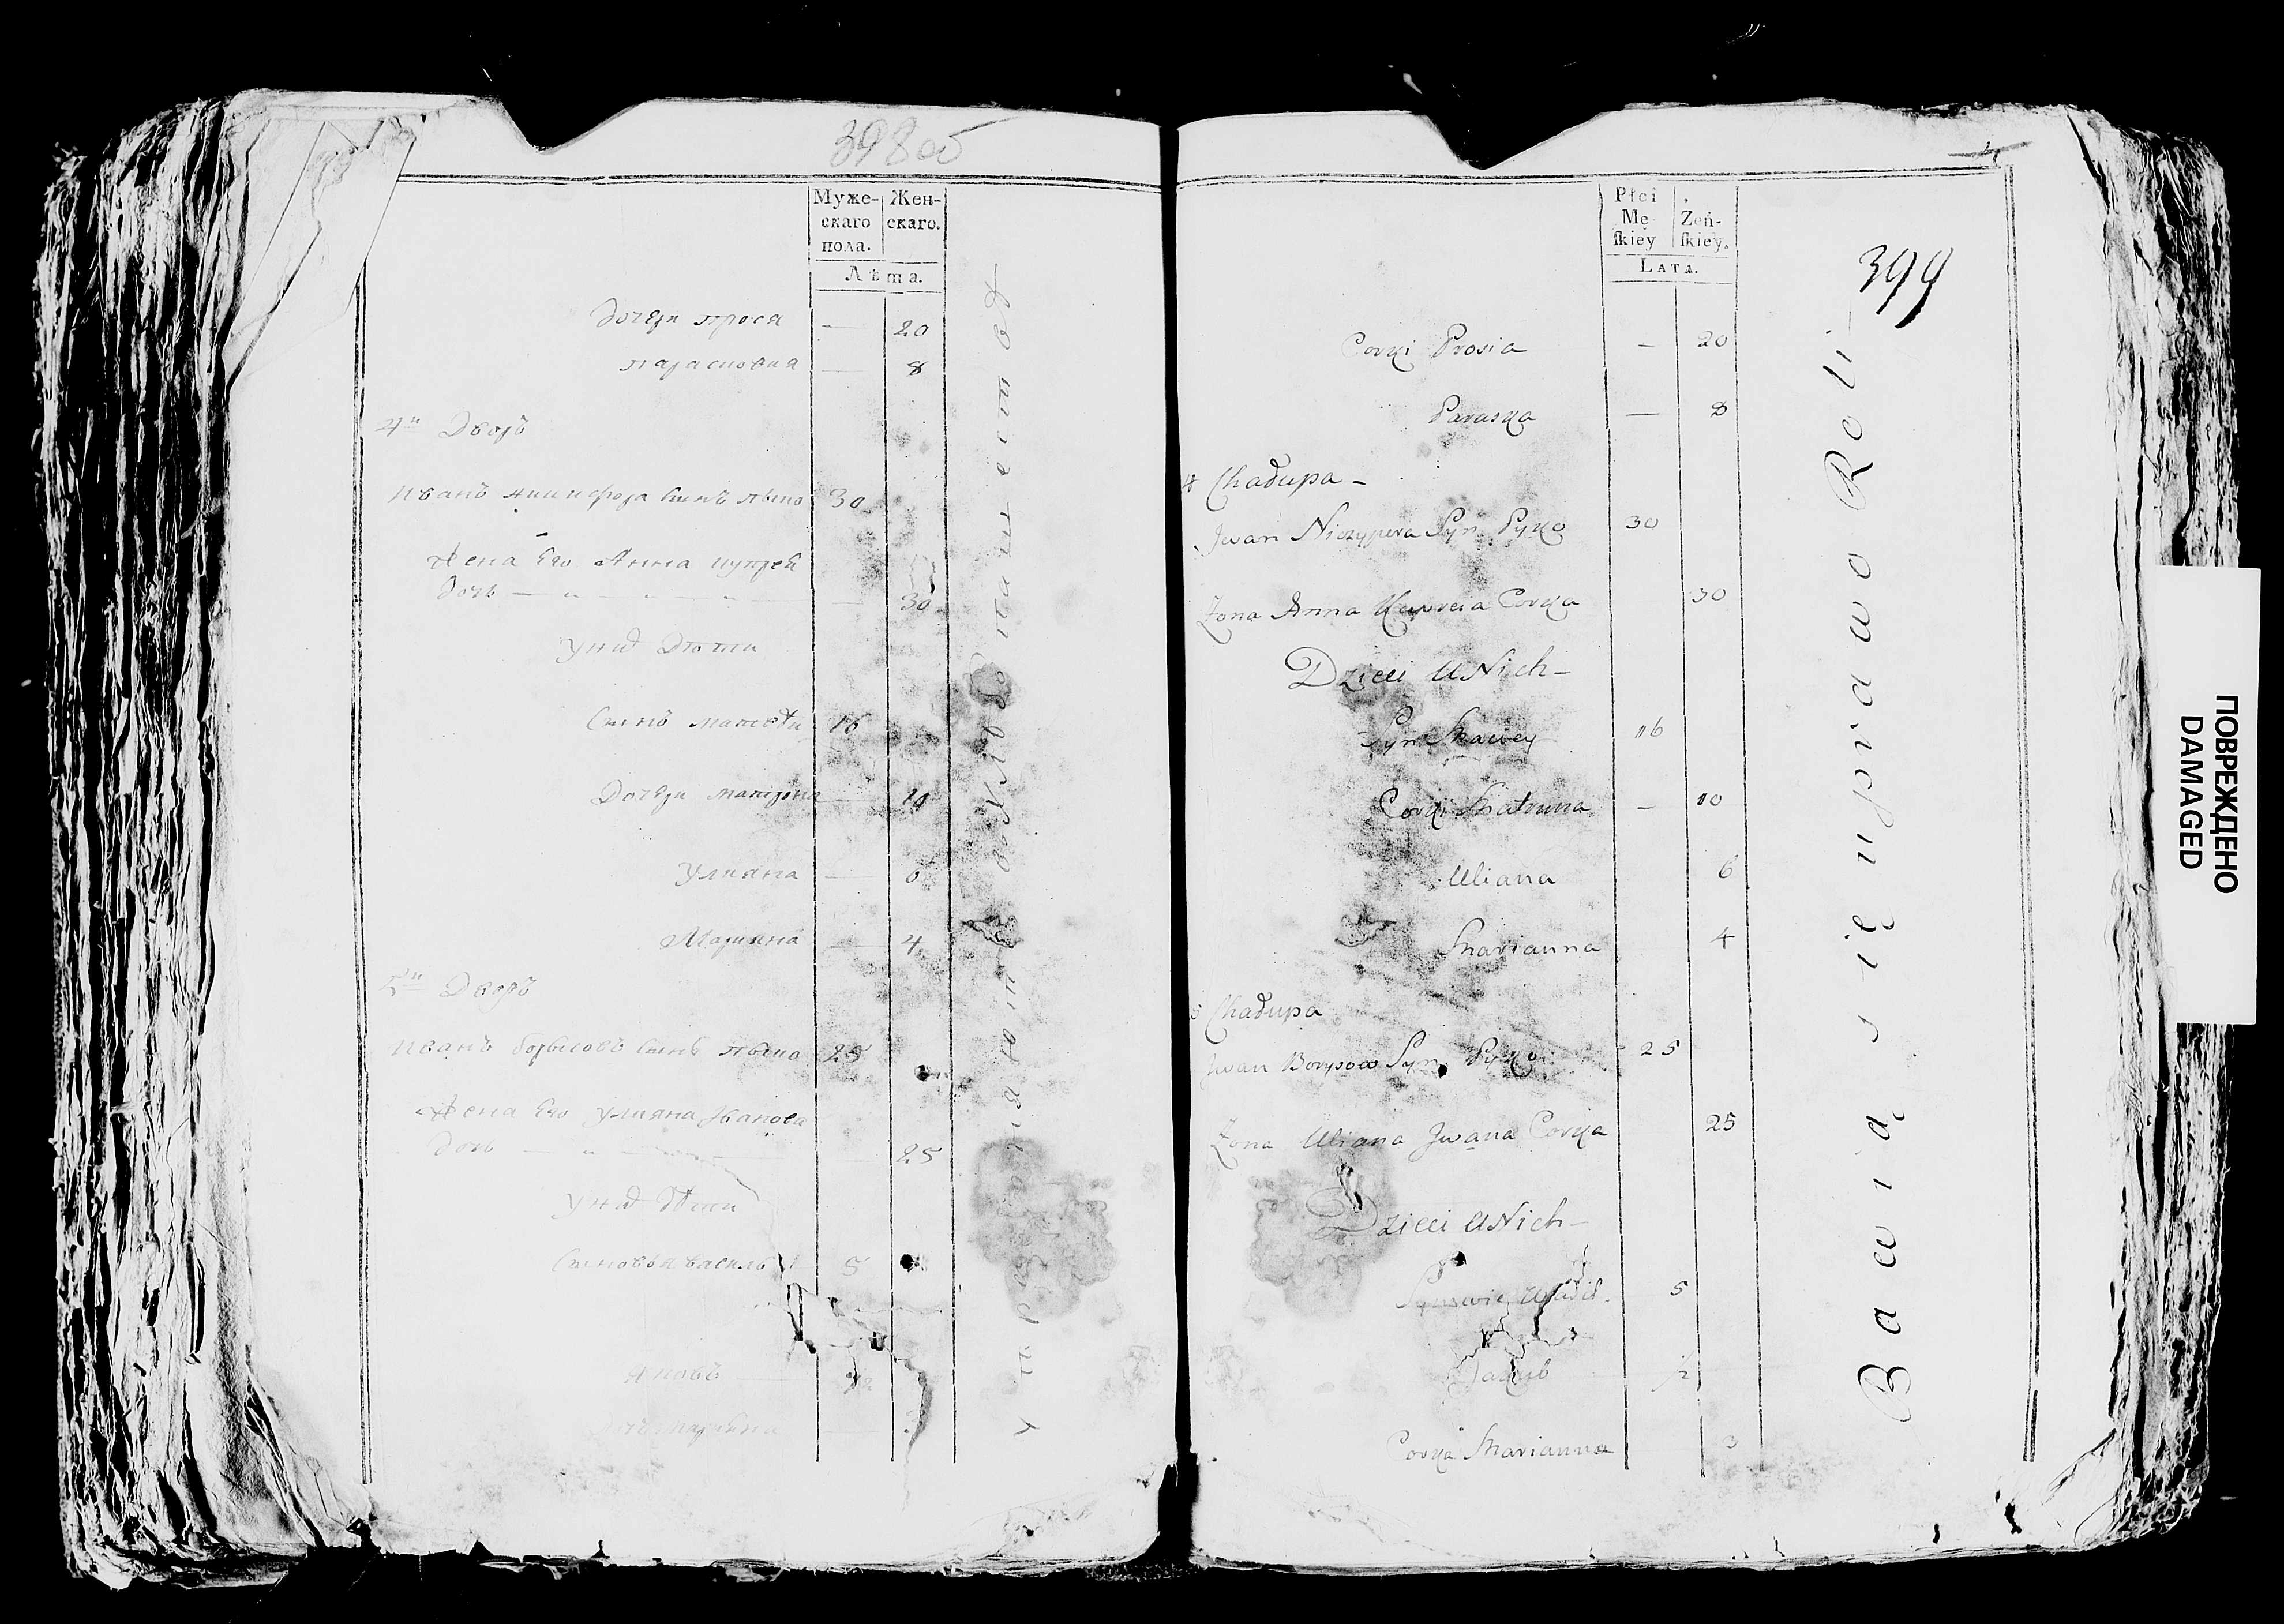 398 об
Муже-
скаго
пола.
Жен-
скаго.
Лѣта.
Дочери прося — 20
парасковия — 8
4й Дворъ
Иванъ ничипора сынъ пыко 30
Жена Его Анна купрея
дочь — 30
У них Дѣти
Сынъ матвѣи 16
Дочери матрона — 10
Улияна — 6
Марияна — 4
5й Дворъ
Иванъ борысовъ сынъ пыко 25
Жена Его улияна Иванова
дочь — 25
У них Дѣти
Сыновья василь 5
Яковъ
дочь Марияна
399
Płci
Mę-
ſkiey
Żeń-
ſkiey.
Lата.
Corki Prosia — 20
Paraska — 8
4 Chadupa -
Jwan Niczypera Syn Pyko 30
Zona Anna Kuprcia Corka 30
Dzieci U Nich -
Syn Maciey 16
Corki Matruna — 10
Uliana 6
Marianna 4
5 Chadupa
Jwan Borysow Syn Pyko 25
Zona Uliana Jwana Corka 25
Dzieci U Nich -
Synowie Wasil 5
Jakub ½
Corka Marianna 3
Bawią się uprawo Roli
ПОВРЕЖДЕНО
DAMAGED